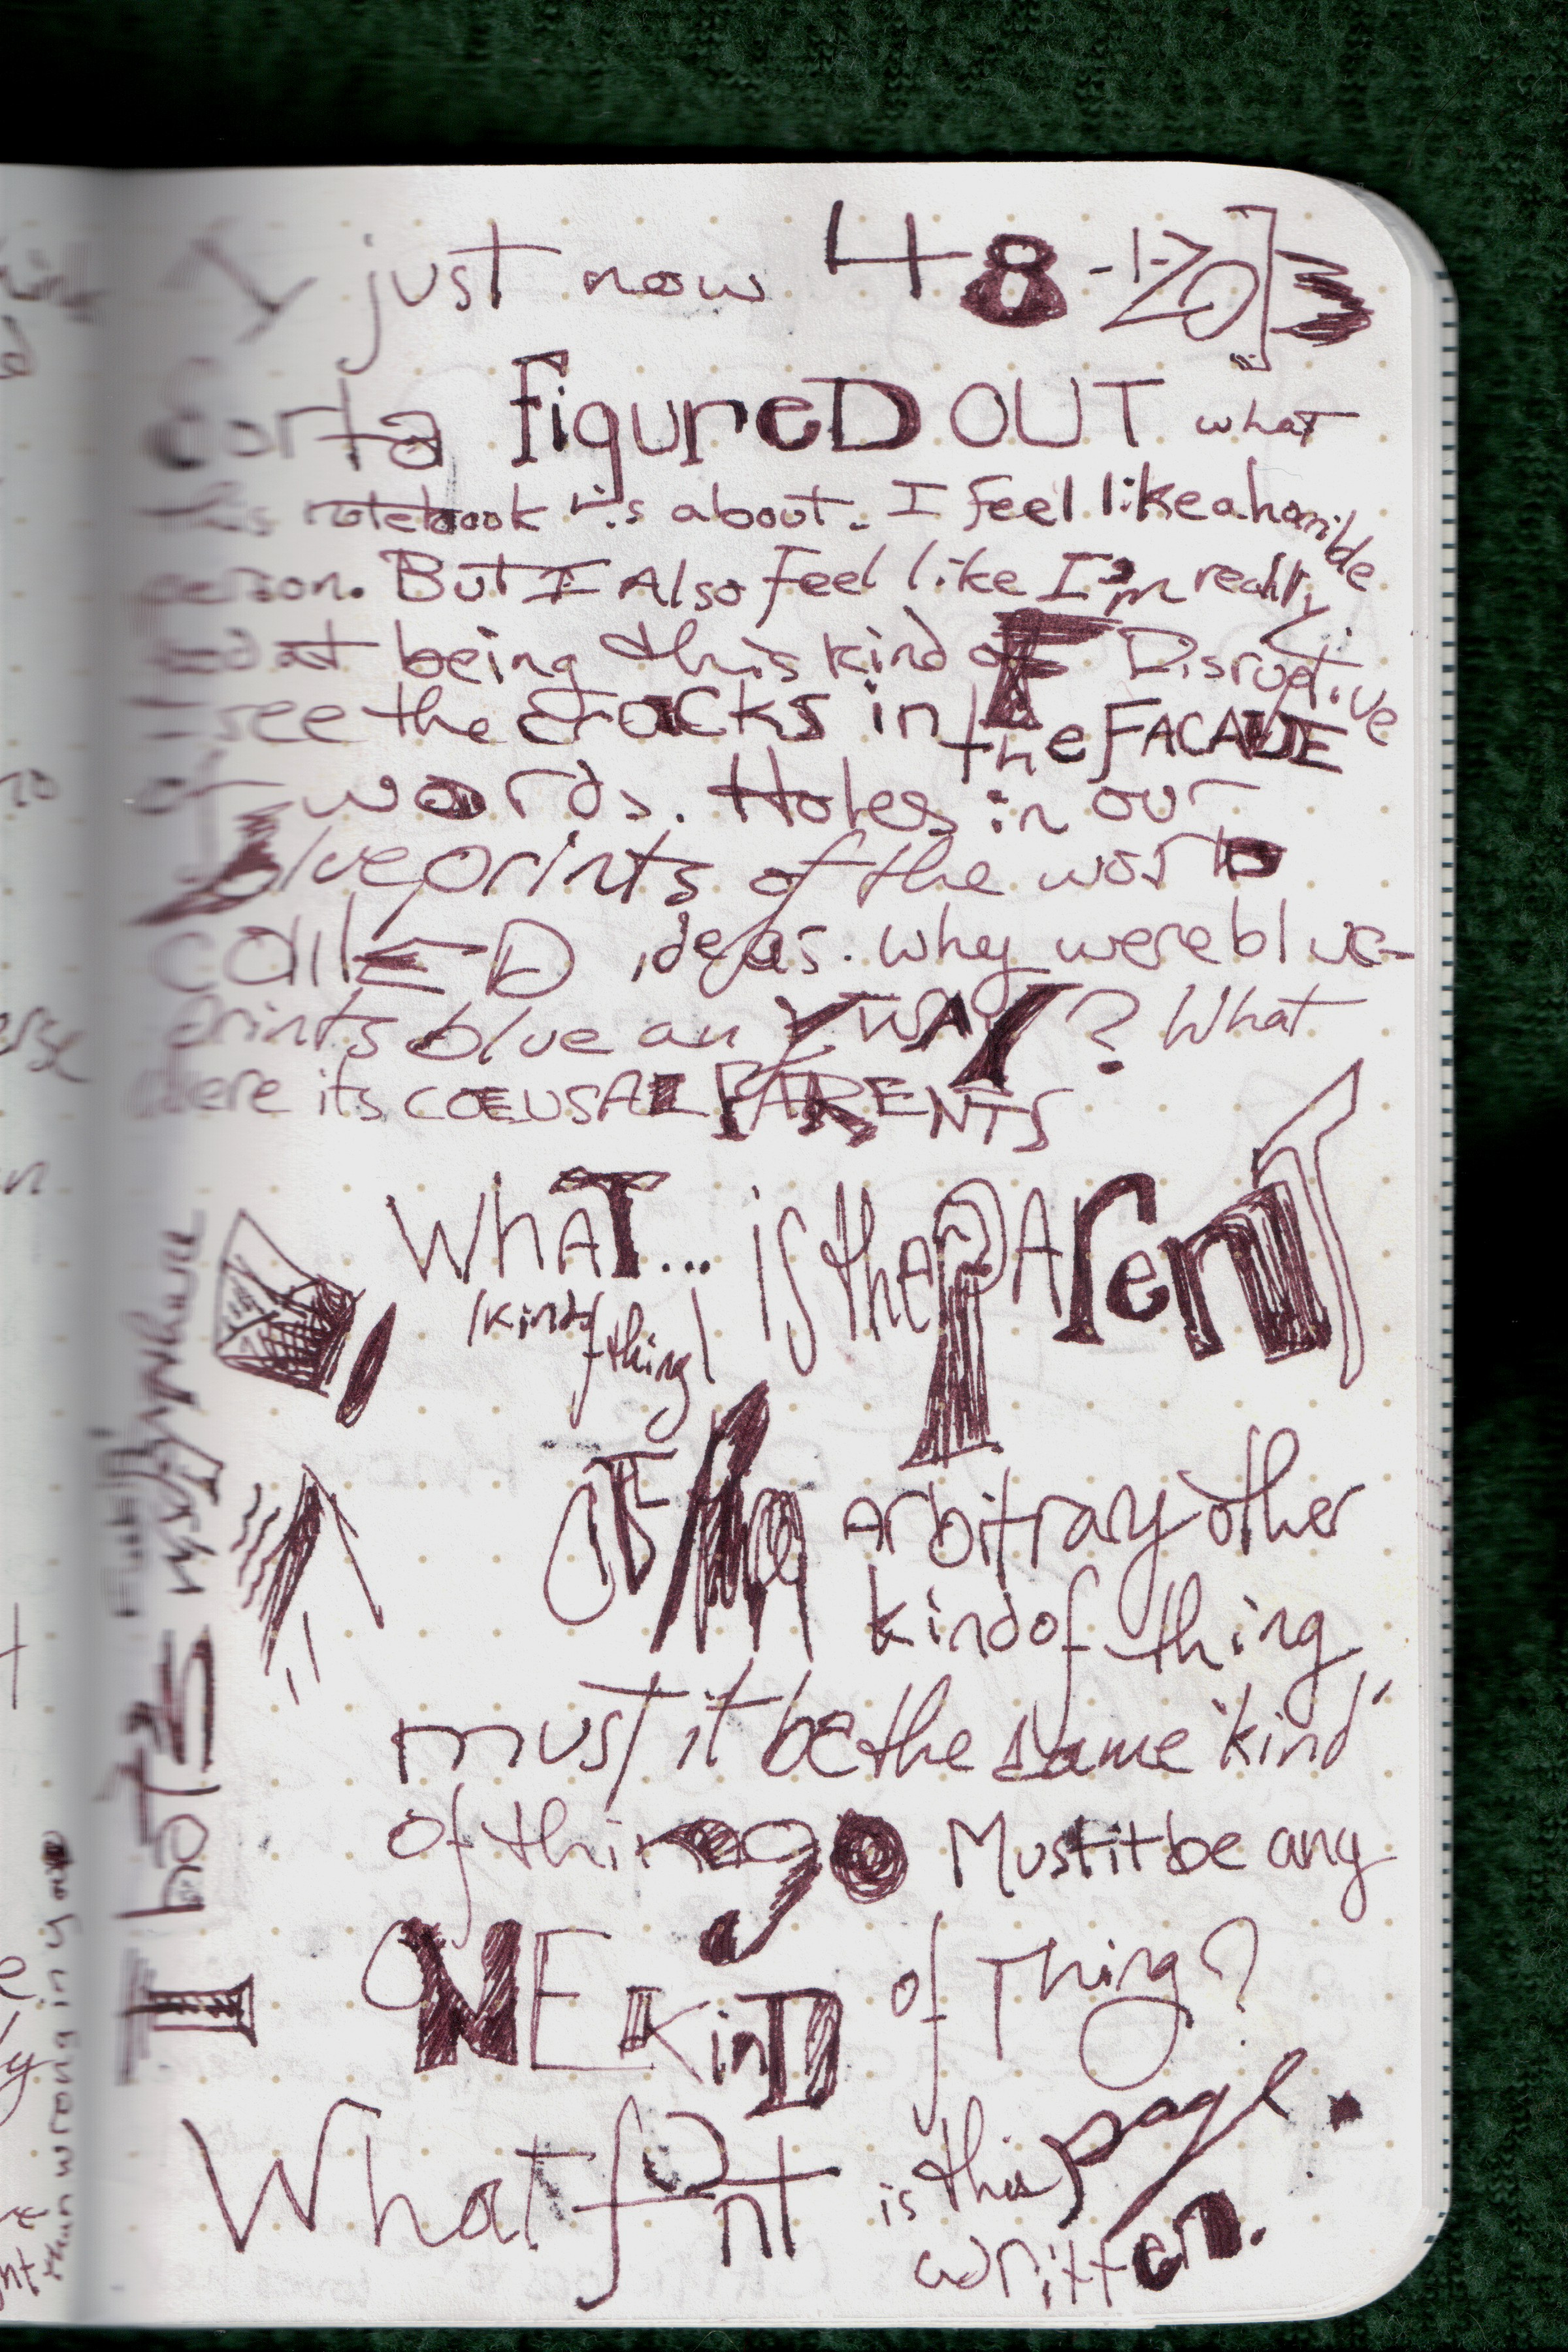 I just now 4 8 - 17 2013
Sorta figureD OUT what
this notebook is about. I Feel like a horrible
person. But I Also feel like I'm really
good at being this kind of Disruptive
I see the cracks in the FACADE
of words. Holes in our
blueprints of the world
called ideas. why were blue-
prints blue anYWAY? What
were its COEUSAL PARENTS
WhAT... is the PARenT
/kind of thing/
OF An Arbitrary other
kind of thing
must it be the same "kind"
of thing Must it be any
ONE KinD of Thing?
What font is this page
written.
I bots
than wrong in your